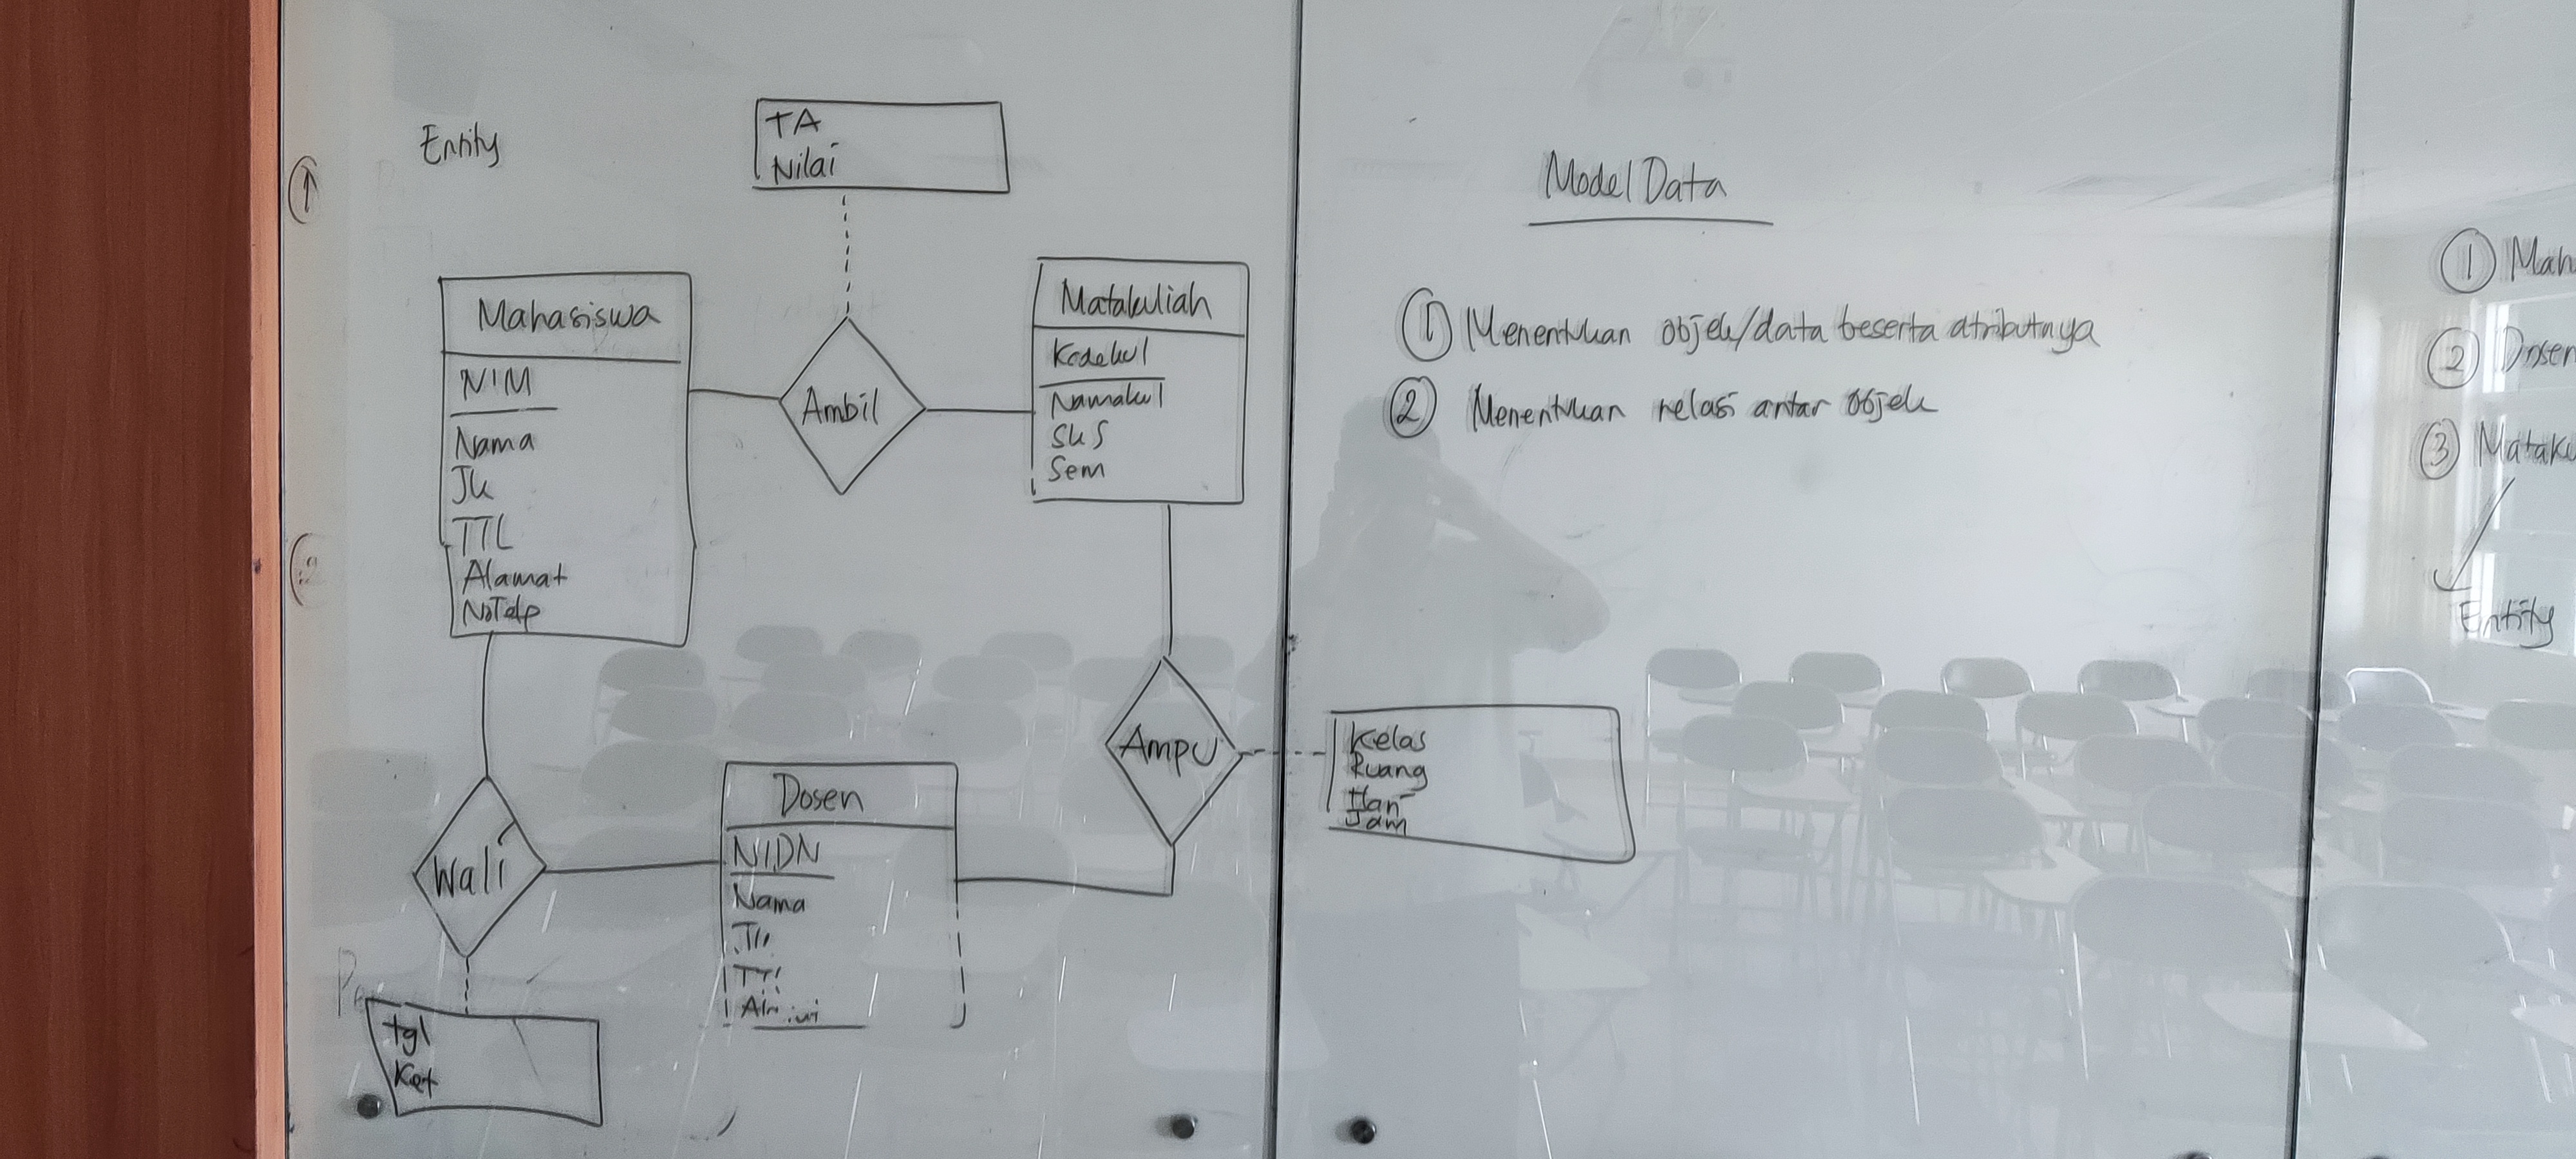 Entity
TA
Nilai
Mahasiswa
NIM
Nama
Jk
TTL
Alamat
NoTelp
Ambil
Matakuliah
Kodekul
Namakul
SkS
Sem
Wali
tgl
Ket
Dosen
NIDN
Nama
Ampu
Kelas
Ruang
Hari
Jam
Model Data
① Menentukan objek/data beserta atributnya
② Menentukan relasi antar objek
① Mah
② Dosen
③ Mataku
Entity